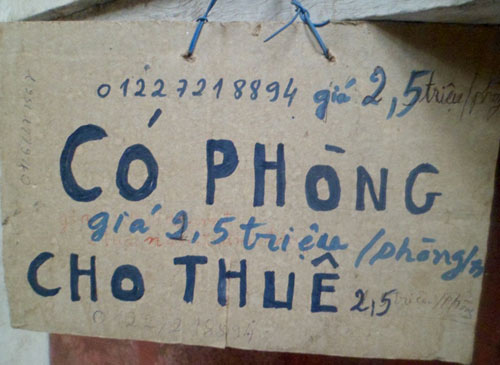 01227218894 giá 2,5 triệu/phòng
CÓ PHÒNG
giá 2,5 triệu/phòng/
CHO THUÊ 2,5 triệu/phòng